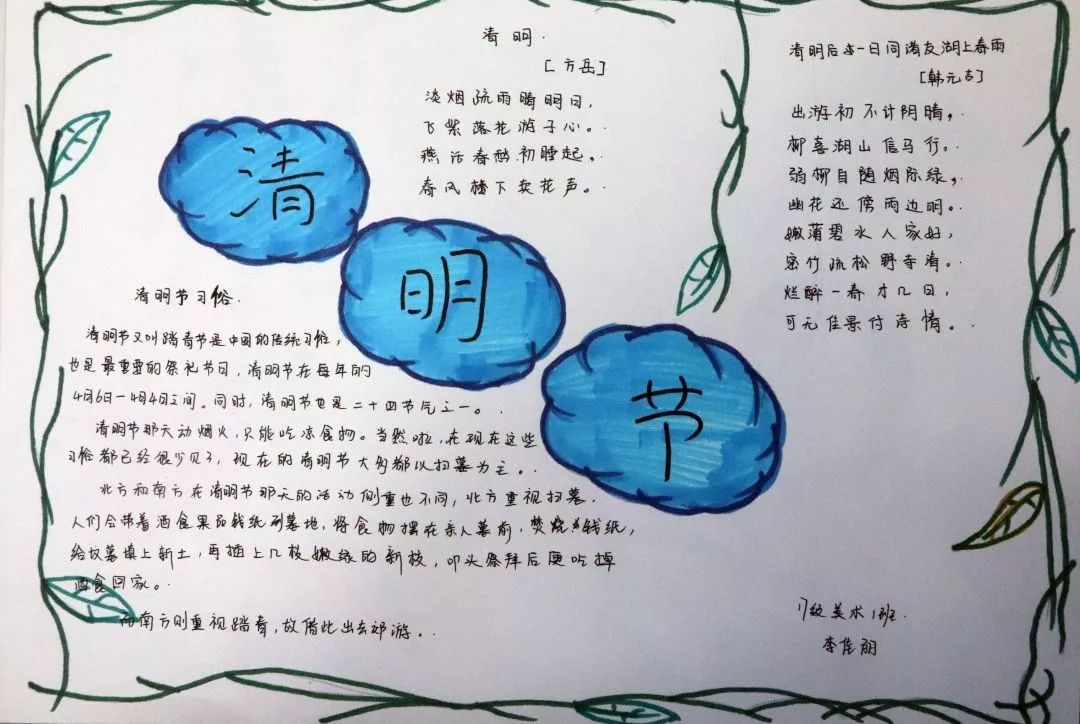 清明.
[方岳]
淡烟疏雨晴明日,
飞紫落花游子心。.
燕活春愁.初睡起。.
春风楼下卖花声。.
清
明
节
清明节习俗.
清明节又叫踏青节是中国的传统习俗,
也是最重要的祭祀节日,清明节在每年的
4月6日一4月4日之间。同时,清明节也是二十四节气之一。.
清明节那天动烟火,只能吃凉食物。当然啦,在现在这些
习俗都已经很少见了,现在的清明节大多都以扫墓为主。.
北方和南方在清明节那天的活动侧重也不同,北方重视扫墓.
人们会带着酒食果品钱纸到墓地,将食物摆在亲人墓前,焚烧钱纸,
给坟墓填上新土,再插上几枝嫩绿的新枝,叩头祭拜后便吃掉
酒食回家。.
而南方则重视踏青,故借此出去郊游。.
清明后一日同诸友湖上春雨
[韩元吉]
出游初不计阴晴,.
柳喜湖山信马行。.
弱柳自随烟际绿,.
幽花还傍雨边明。.
嫩蒲碧水人家好,
密竹疏松野寺清。.
烂醉一春才几日,
可无佳景付诗情。.
17级美术1班.
李佳丽